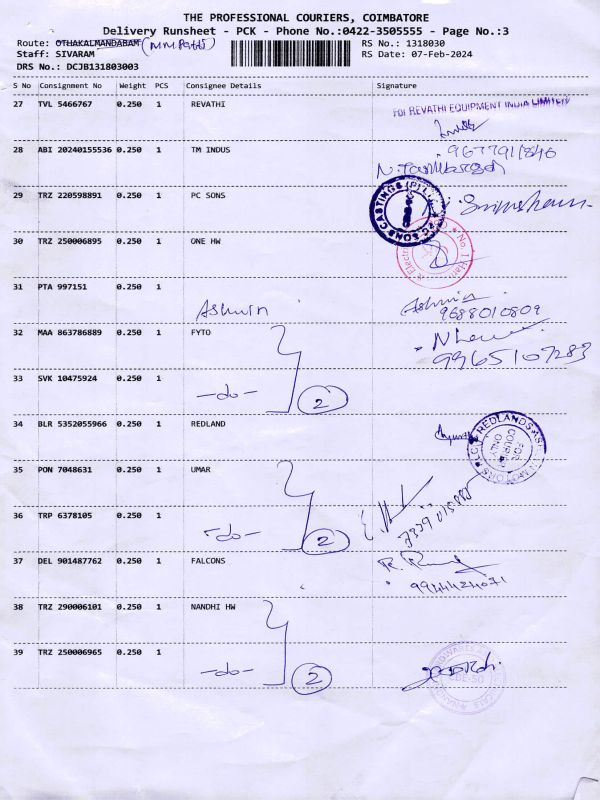 THE PROFESSIONAL COURIERS, COIMBATORE
Delivery Runsheet - PCK - Phone No.:0422-3505555 - Page No.:3
Route: OTHAKALMANDABAM
RS No.: 1318030
Staff: SIVARAM
RS Date: 07-Feb-2024
DRS No.: DCJB131803003
S No Consignment No Weight PCS Consignee Details Signature
27 TVL 5466767 0.250 1 REVATHI
For REVATHI EQUIPMENT INDIA LIMITED
28 ABI 20240155536 0.250 1 TM INDUS
29 TRZ 220598891 0.250 1 PC SONS
PC SONS CASTINGS (P)
30 TRZ 250006895 0.250 1 ONE HW
31 PTA 997151 0.250 1
Ashwin Ashwin
9688010809
32 MAA 863786889 0.250 1 FYTO
9965107283
33 SVK 10475924 0.250 1 -do- 2
34 BLR 5352055966 0.250 1 REDLAND
REDLANDS
FOR COURIER ONLY
35 PON 7048631 0.250 1 UMAR
36 TRP 6378105 0.250 1 -do- 2
37 DEL 901487762 0.250 1 FALCONS
9944424071
38 TRZ 290006101 0.250 1 NANDHI HW
39 TRZ 250006965 0.250 1 -do- 2